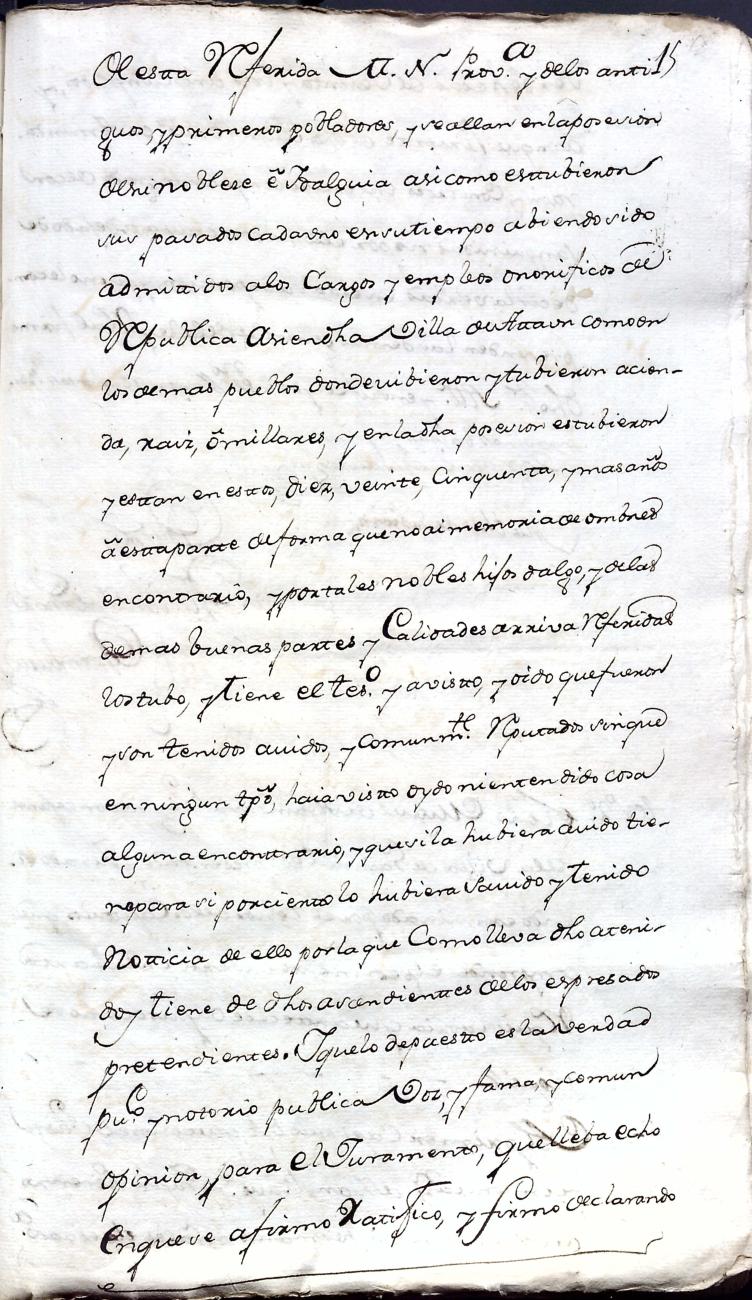 de esta Referida M. N. Prov.ª y delos anti 15
guos, y primeros pobladores, y se allan en la posesion
de su nobleze ê Idalguia asicomo estubieron
sus pasados cada vno en su tiempo abiendo sido
admittidos alos Cargos y empleos onorificos de
Republica asi en dha Villa de Attaun como en
los demas pueblos donde vibieron y tubieron acien-
da, raiz, ô millares, y en la dha posesion estubieron
y esttan en estos, diez, veinte, Cinquenta, y mas años
â esta parte de forma que no ai memoria de ombres
en contrario, y por tales nobles hijos dalgo, y de las
demas buenas partes y Calidades arriva Referidas
los tubo, y tiene el tes.º y a visto, y oido que fueron
y son tenidos auidos, y comunm.te Reputados sin que
en ningun tpô, haia visto oydo ni entendido cosa
alguna en conttrario, y que si la hubiera auido tie-
ne para si por ciento lo hubiera Sauido y tenido
Notticia de ello por la que Como lleva dho a teni-
do y tiene de dhos asendienttes de los espresados
pretendientes. Y que lo depuestto es la verdad
pu.co y notorio publica Voz, y fama, y comun
opinion, para el Juramento, que lleba echo
en que se afirmo Ratifico, y firmo declarando